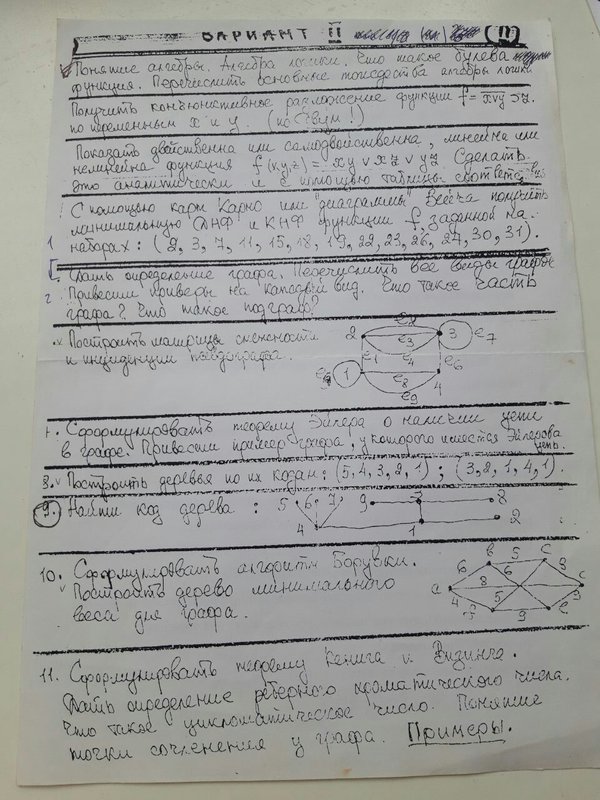 ВАРИАНТ II 11
Понятие алгебры. Алгебра логики. Что такое булева
функция. Перечислить основные тождества алгебры логики
Получить конъюнктивное разложение функции f = x∨y ⊃ z.
по переменным x и y. (по двум!)
Показать двойственна или самодвойственна, линейна или
нелинейна функция f(x,y,z) = xy ∨ xz ∨ yz Сделать
это аналитически и с помощью таблицы соответств.
С помощью карт Карно или диаграммы Вейча получить
минимальную ДНФ и КНФ функции f, заданной на
1 наборах: (2, 3, 7, 11, 15, 18, 19, 22, 23, 26, 27, 30, 31).
Дать определение графа. Перечислить все виды графов
2 Привести примеры на каждый вид. Что такое часть
графа? Что такое подграф?
Построить матрицы смежности
и инциденции псевдографа.
2 e2 3 e7
e3
e1 e4 e6
1 e8 4
e9
7. Сформулировать теорему Эйлера о наличии цепи
в графе. Привести пример графа, у которого имеется Эйлерова
цепь.
8. Построить деревья по их кодам: (5, 4, 3, 2, 1) ; (3, 2, 1, 4, 1).
9. Найти код дерева :
5 6 7 9 3 8
4 1 2
10. Сформулировать алгоритм Борувки.
Построить дерево минимального
веса для графа.
b 5 c
6 6 3
a 8
4 5 3
9 e
11. Сформулировать теорему Кенига и Визинга.
Дать определение реберного хроматического числа.
Что такое цикломатическое число. Понятие
точки сочленения у графа. Примеры.